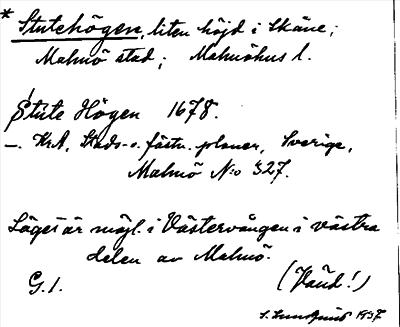 * Stutehögen, liten höjd i Skåne;
Malmö stad; Malmöhus l.
Stute Högen 1678.
—. KrA, Stads- o. fästn. planer, Sverige,
Malmö N:o 327.
Läget är möjl. i Västervången i västra
delen av Malmö.
G. 1. (Vänd!)
1937